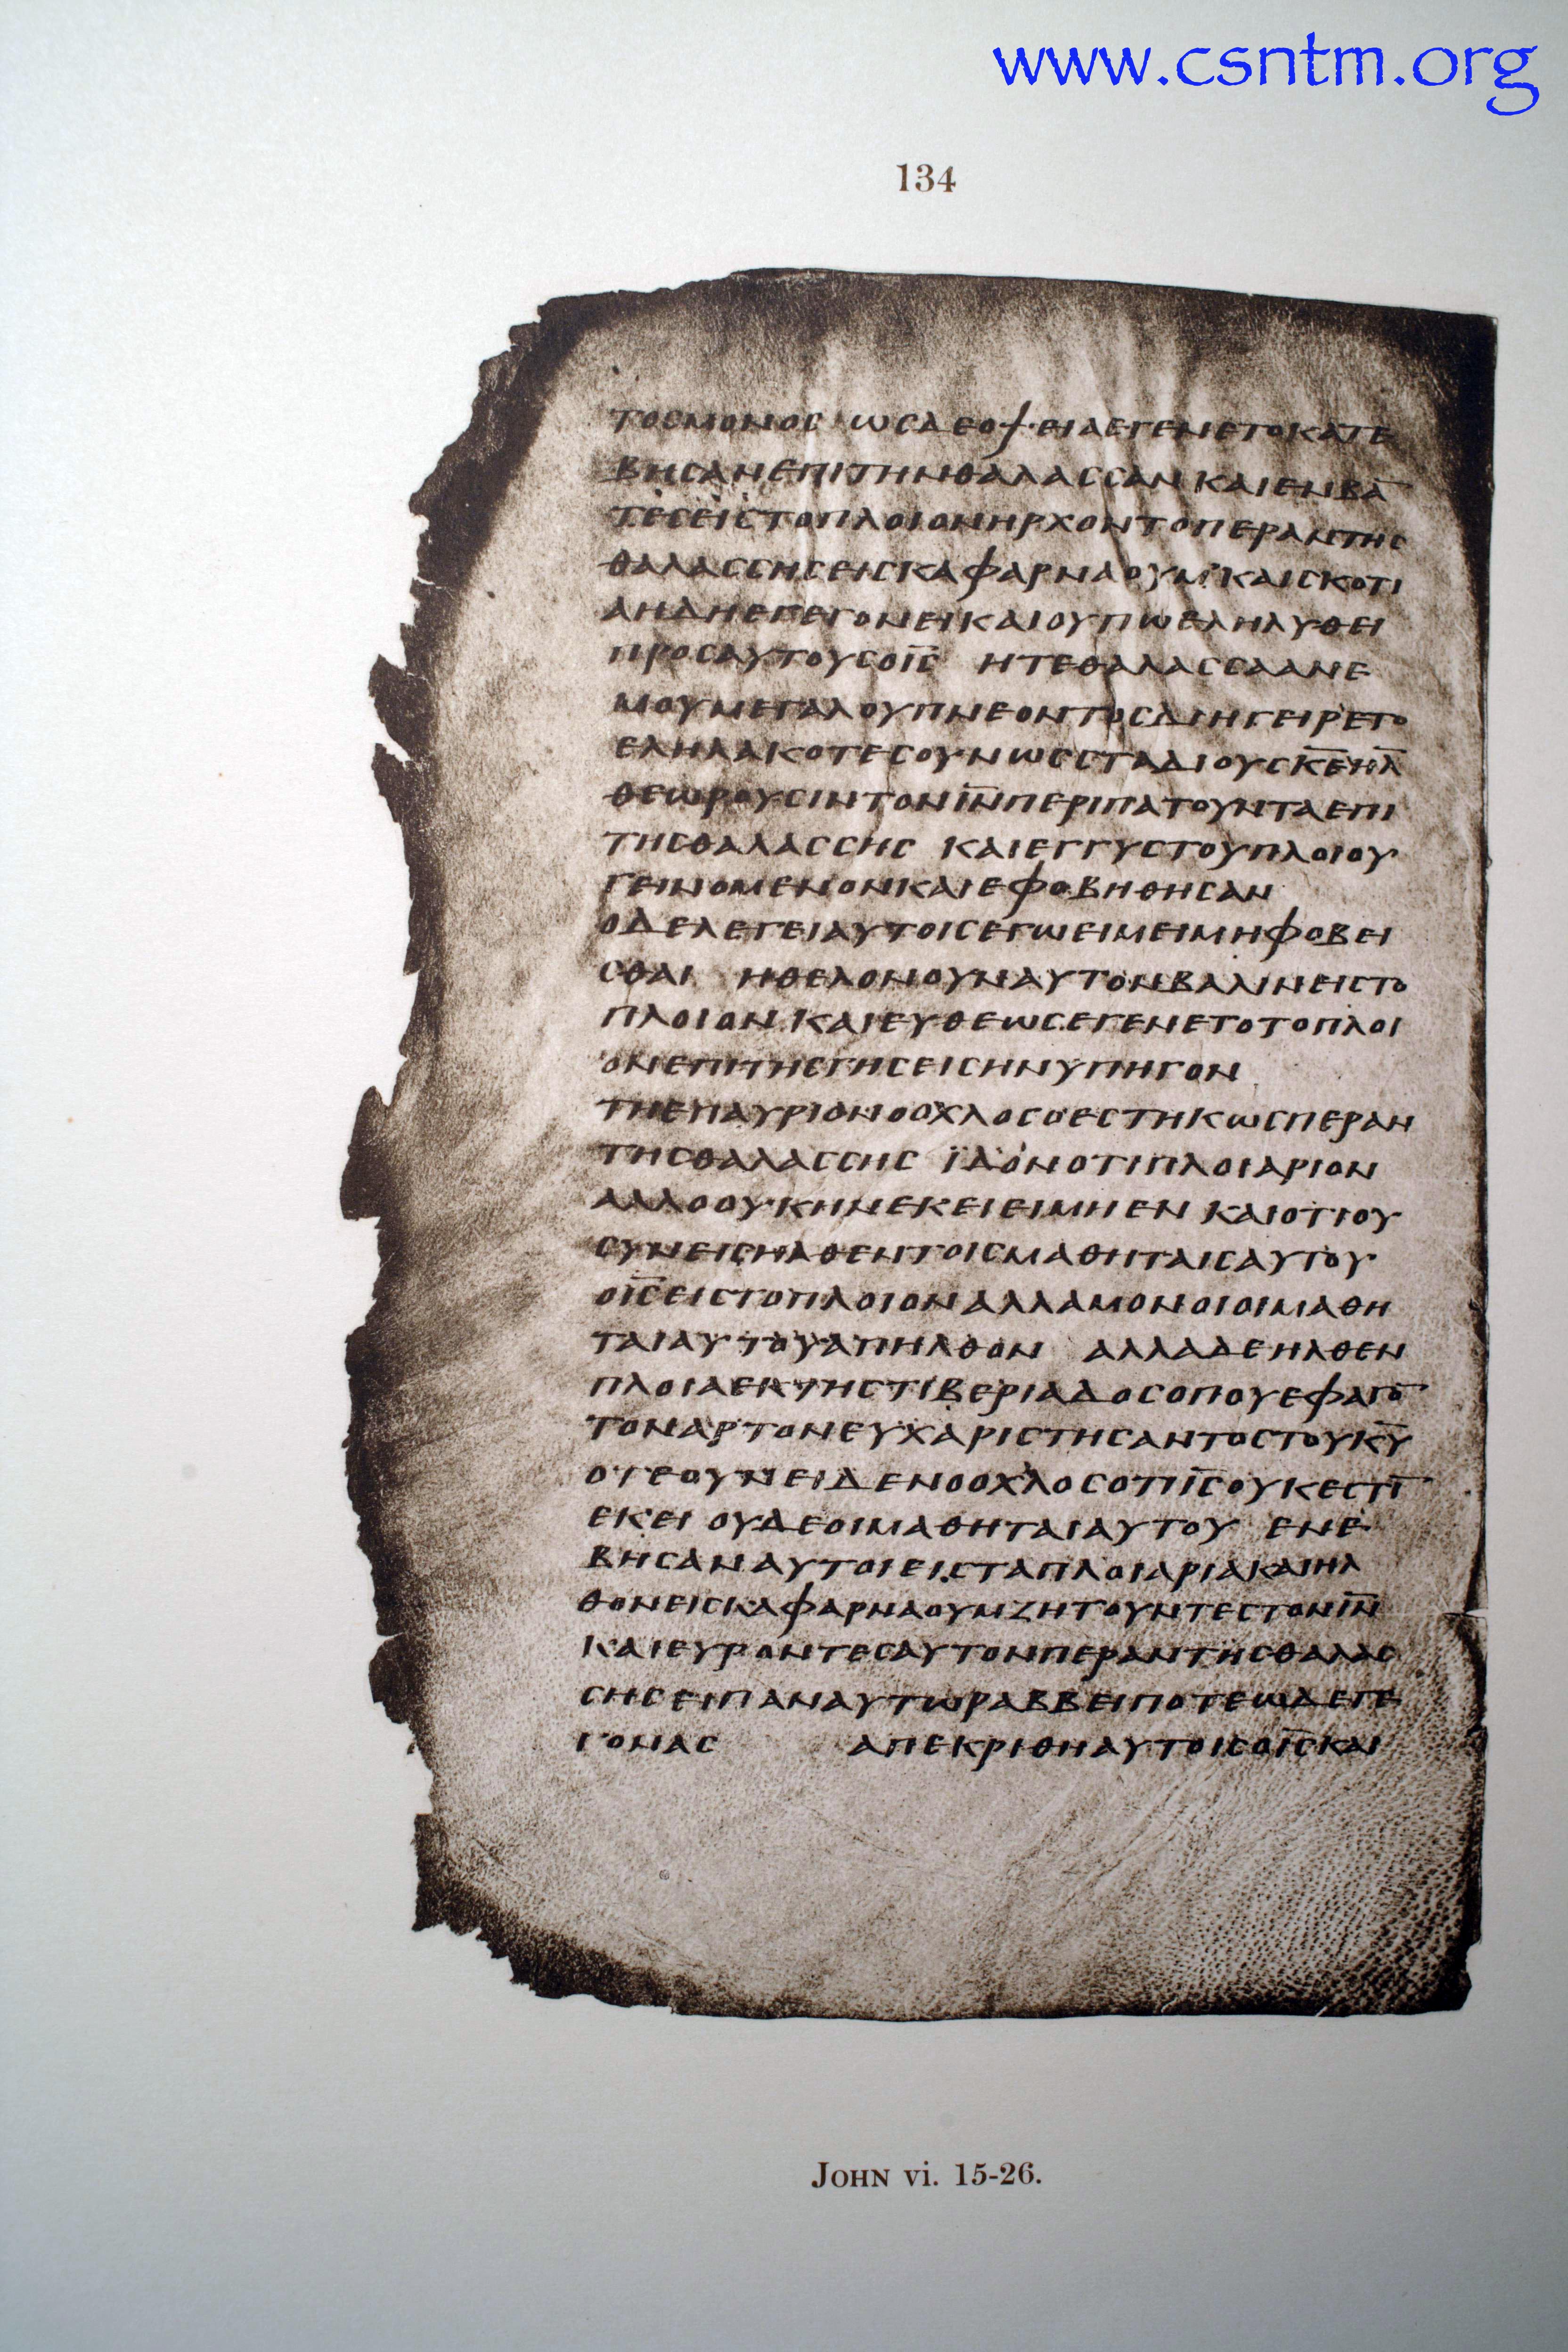 www.csntm.org
134
ΤΟΣΜΟΝΟΣ ΩΣΔΕΟΨΕΙΑΕΓΕΝΕΤΟΚΑΤΕ
ΒΗΣΑΝΕΠΙΤΗΝΘΑΛΑΣΣΑΝΚΑΙΕΝΒΑ̅
ΤΕΣΕΙΣΤΟΠΛΟΙΟΝΗΡΧΟΝΤΟΠΕΡΑΝΤΗΣ
ΘΑΛΑΣΣΗΣΕΙΣΚΑΦΑΡΝΑΟΥΜ'ΚΑΙΣΚΟΤΙ
ΑΗΔΗΕΓΕΓΟΝΕΙΚΑΙΟΥΠΩΕΛΗΛΥΘΕΙ
ΠΡΟΣΑΥΤΟΥΣΟΙ̅Σ̅ ΗΤΕΘΑΛΑΣΣΑΑΝΕ
ΜΟΥΜΕΓΑΛΟΥΠΝΕΟΝΤΟΣΔΙΗΓΕΙΡΕΤΟ
ΕΛΗΛΑΚΟΤΕΣΟΥΝΩΣΣΤΑΔΙΟΥΣΚ̅Ε̅ΗΛ̅
ΘΕΩΡΟΥΣΙΝΤΟΝΙ̅Ν̅ΠΕΡΙΠΑΤΟΥΝΤΑΕΠΙ
ΤΗΣΘΑΛΑΣΣΗΣ ΚΑΙΕΓΓΥΣΤΟΥΠΛΟΙΟΥ
ΓΕΙΝΟΜΕΝΟΝΚΑΙΕΦΟΒΗΘΗΣΑΝ
ΟΔΕΛΕΓΕΙΑΥΤΟΙΣΕΓΩΕΙΜΕΙΜΗΦΟΒΕΙ
ΣΘΑΙ ΗΘΕΛΟΝΟΥΝΑΥΤΟΝΒΑΛΙΝΕΙΣΤΟ
ΠΛΟΙΟΝ ΚΑΙΕΥΘΕΩΣΕΓΕΝΕΤΟΤΟΠΛΟΙ
ΟΝΕΠΙΤΗΣΓΗΣΕΙΣΗΝΥΠΗΓΟΝ
ΤΗΕΠΑΥΡΙΟΝΟΟΧΛΟΣΟΕΣΤΗΚΩΣΠΕΡΑΝ
ΤΗΣΘΑΛΑΣΣΗΣ ΪΔΟΝΟΤΙΠΛΟΙΑΡΙΟΝ
ΑΛΛΟΟΥΚΗΝΕΚΕΙΕΙΜΗΕΝ ΚΑΙΟΤΙΟΥ
ΣΥΝΕΙΣΗΛΘΕΝΤΟΙΣΜΑΘΗΤΑΙΣΑΥΤΟΥ
ΟΙ̅Σ̅ΕΙΣΤΟΠΛΟΙΟΝΑΛΛΑΜΟΝΟΙΟΙΜΑΘΗ
ΤΑΙΑΥΤΟΥΑΠΗΛΘΟΝ ΑΛΛΑΔΕΗΛΘΕΝ
ΠΛΟΙΑΕΚΤΗΣΤΙΒΕΡΙΑΔΟΣΟΠΟΥΕΦΑΓΟ̅
ΤΟΝΑΡΤΟΝΕΥΧΑΡΙΣΤΗΣΑΝΤΟΣΤΟΥΚ̅Υ̅
ΟΤΕΟΥΝΕΙΔΕΝΟΟΧΛΟΣΟΤΙΙ̅Σ̅ΟΥΚΕΣΤΙ̅
ΕΚΕΙ ΟΥΔΕΟΙΜΑΘΗΤΑΙΑΥΤΟΥ ΕΝΕ
ΒΗΣΑΝΑΥΤΟΙΕΙΣΤΑΠΛΟΙΑΡΙΑΚΑΙΗΛ
ΘΟΝΕΙΣΚΑΦΑΡΝΑΟΥΜΖΗΤΟΥΝΤΕΣΤΟΝΙ̅Ν̅
ΚΑΙΕΥΡΟΝΤΕΣΑΥΤΟΝΠΕΡΑΝΤΗΣΘΑΛΑΣ
ΣΗΣΕΙΠΑΝΑΥΤΩΡΑΒΒΕΙΠΟΤΕΩΔΕΓΕ
ΓΟΝΑΣ ΑΠΕΚΡΙΘΗΑΥΤΟΙΣΟΙ̅Σ̅ΚΑΙ
JOHN vi. 15-26.